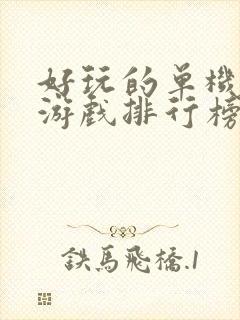 好玩的单機
游戲排行榜
鉄馬飛橋.1